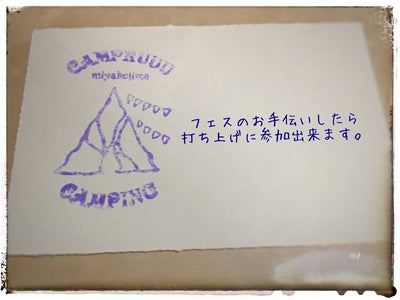 CAMPKUUU
miyakejima
フェスのお手伝いしたら
打ち上げに参加出来ます。
CAMPING